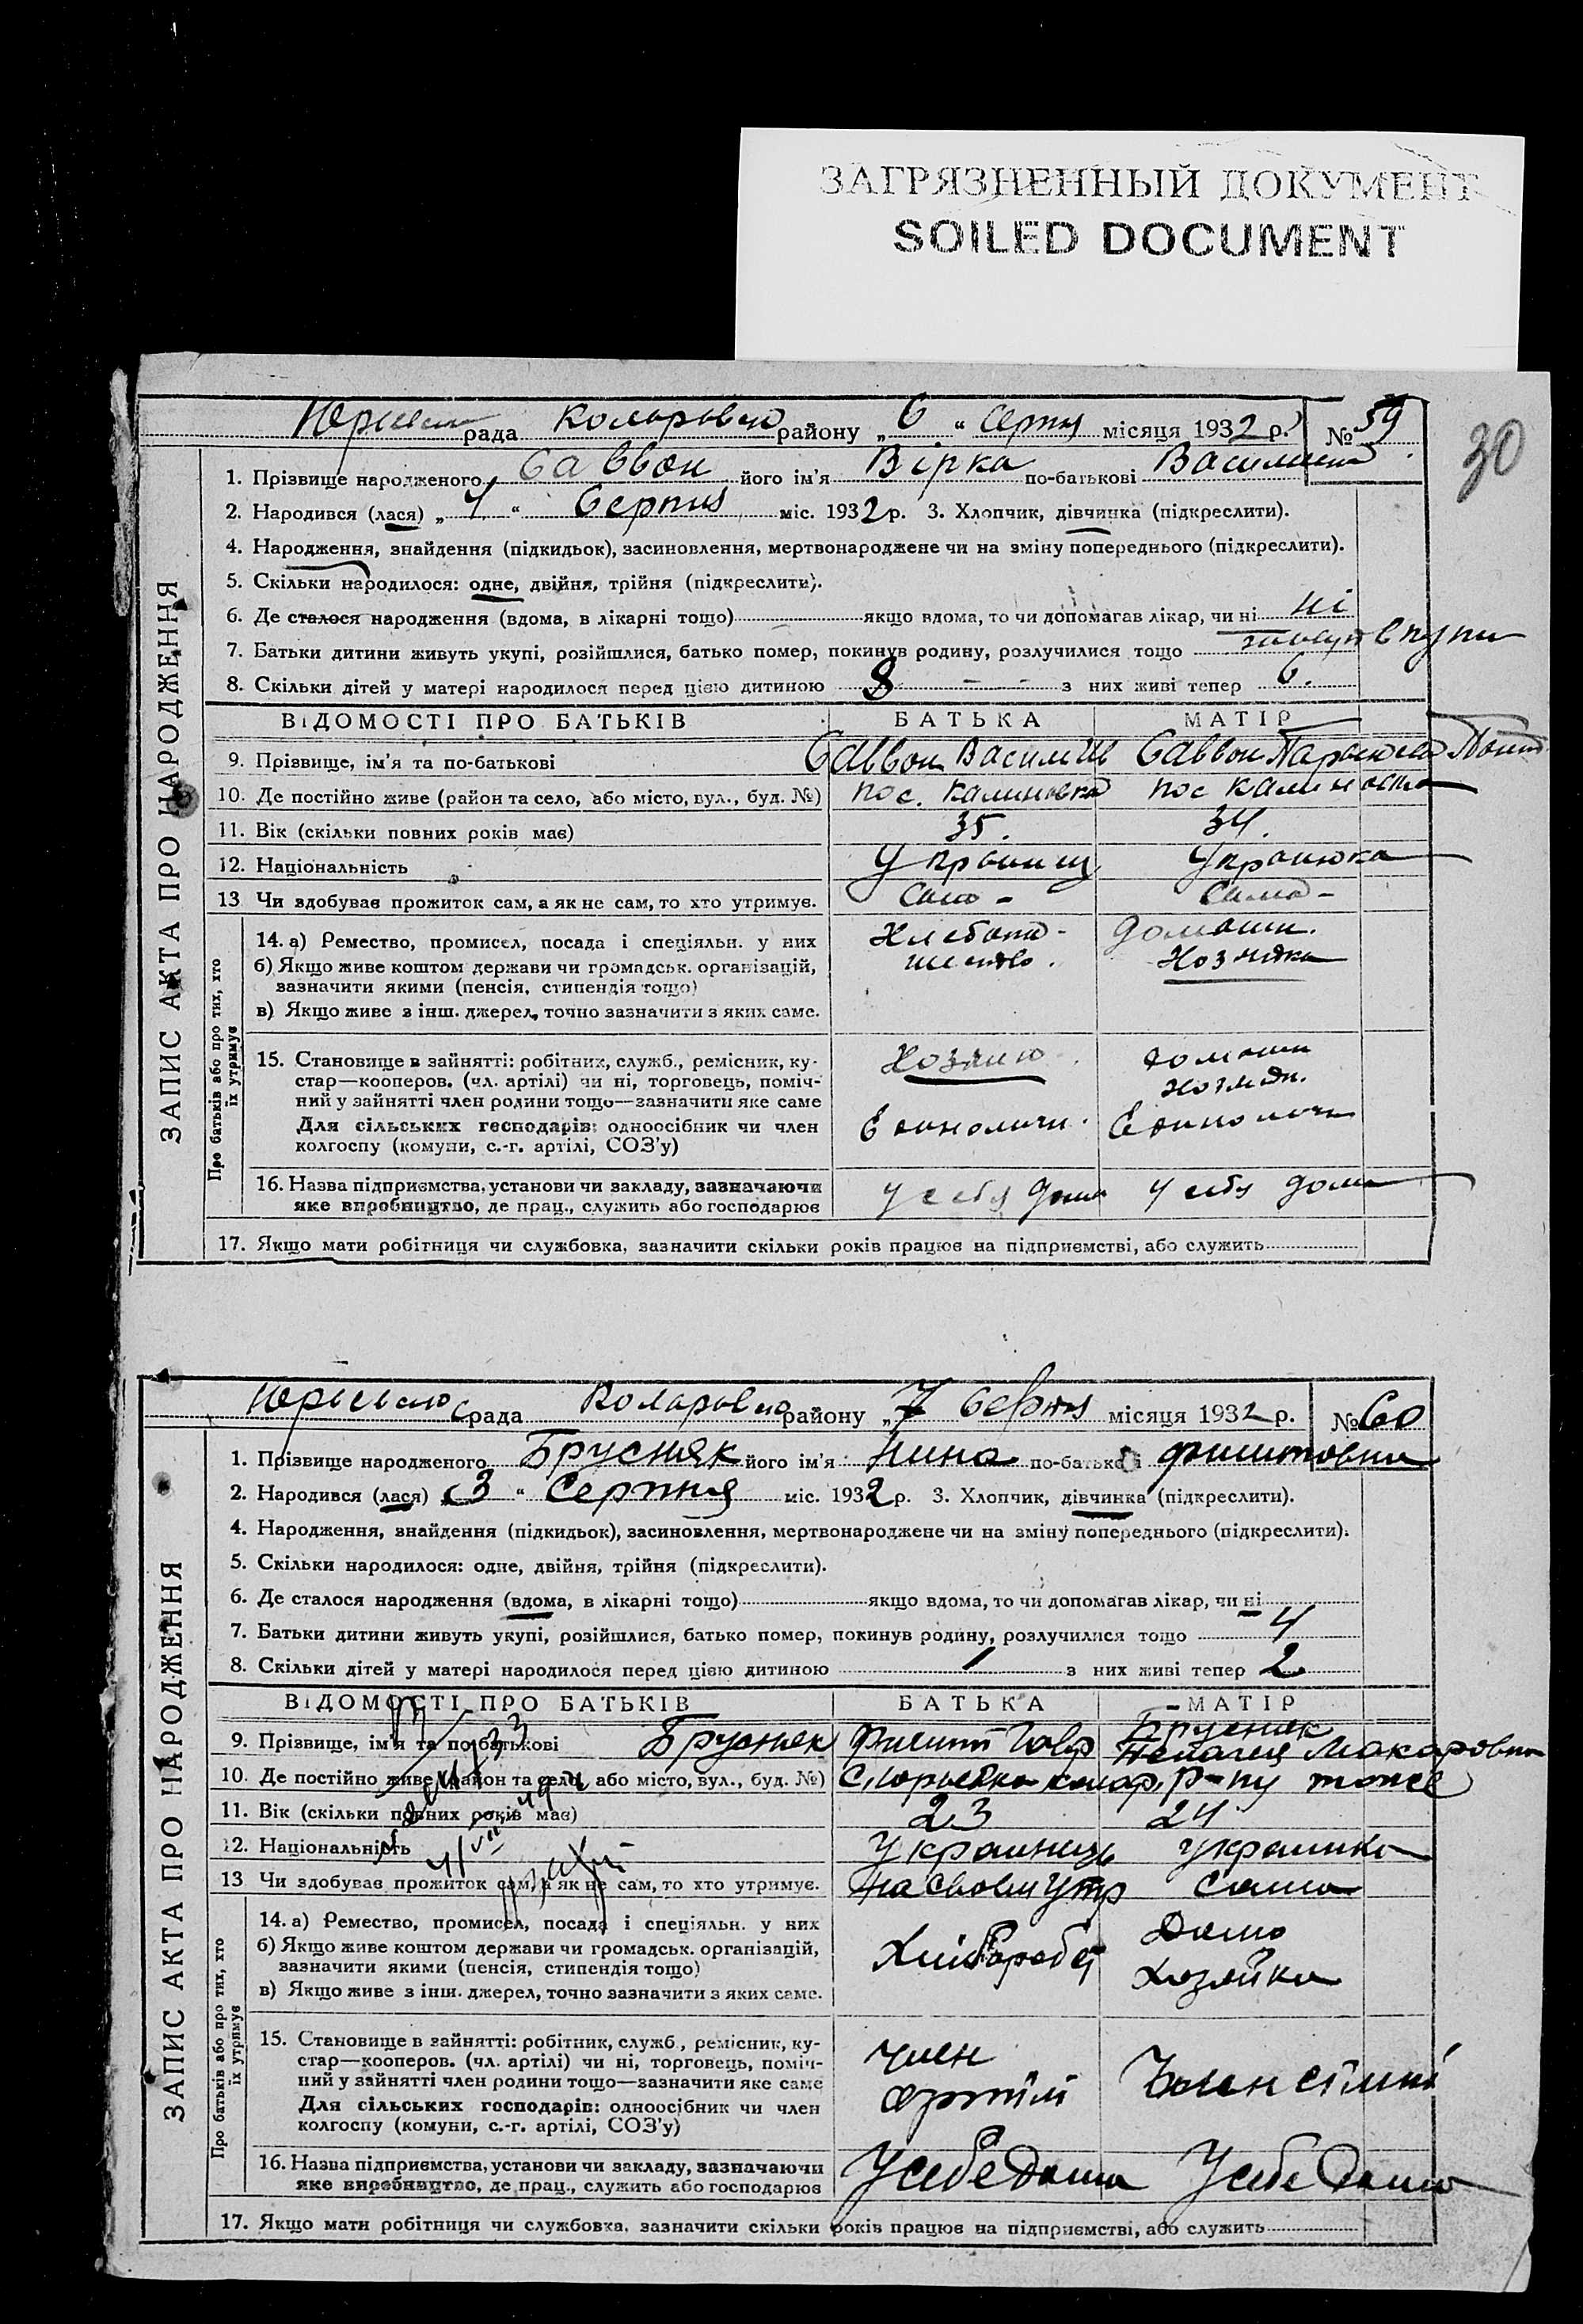 ЗАГРЯЗНЕННЫЙ ДОКУМЕНТ
SOILED DOCUMENT
30
рада району „ 6 “ Серпня місяця 1932 р. № 59
ЗАПИС АКТА ПРО НАРОДЖЕННЯ
1. Прізвище народженого Саввон його ім'я Вірка по-батькові
2. Народився (лася) „ “ Серпня міс. 1932 р. 3. Хлопчик, дівчинка (підкреслити).
4. Народження, знайдення (підкидьок), засиновлення, мертвонароджене чи на зміну попереднього (підкреслити).
5. Скільки народилося: одне, двійня, трійня (підкреслити).
6. Де сталося народження (вдома, в лікарні тощо) якщо вдома, то чи допомагав лікар, чи ні ні
7. Батьки дитини живуть укупі, розійшлися, батько помер, покинув родину, розлучилися тощо
8. Скільки дітей у матері народилося перед цією дитиною 8 з них живі тепер 6.
ВІДОМОСТІ ПРО БАТЬКІВ БАТЬКА МАТІР
9. Прізвище, ім'я та по-батькові Саввон Саввон
10. Де постійно живе (район та село, або місто, вул., буд. №) пос. Калиновка пос
11. Вік (скільки повних років має) 35. 34.
12. Національність
13 Чи здобуває прожиток сам, а як не сам, то хто утримує. Сама -
Про батьків або про тих, хто їх утримує
14. а) Ремество, промисел, посада і спеціяльн. у них
б) Якщо живе коштом держави чи громадськ. організацій,
зазначити якими (пенсія, стипендія тощо)
в) Якщо живе з інш. джерел, точно зазначити з яких саме.
15. Становище в зайнятті: робітник, служб., ремісник, ку-
стар—кооперов. (чл. артілі) чи ні, торговець, поміч-
ний у зайнятті член родини тощо—зазначити яке саме
Для сільських господарів: одноосібник чи член
колгоспу (комуни, с.-г. артілі, СОЗ'у)
16. Назва підприємства, установи чи закладу, зазначаючи у себя дома у себя дома
яке виробництво, де прац., служить або господарює
17. Якщо мати робітниця чи службовка, зазначити скільки років працює на підприємстві, або служить
рада району „ 7 Серпня місяця 1932 р. № 60
ЗАПИС АКТА ПРО НАРОДЖЕННЯ
1. Прізвище народженого Брусняк його ім'я Нина по-батькові
2. Народився (лася) „ 3 “ Серпня міс. 1932 р. 3. Хлопчик, дівчинка (підкреслити).
4. Народження, знайдення (підкидьок), засиновлення, мертвонароджене чи на зміну попереднього (підкреслити).
5. Скільки народилося: одне, двійня, трійня (підкреслити).
6. Де сталося народження (вдома, в лікарні тощо) якщо вдома, то чи допомагав лікар, чи ні
7. Батьки дитини живуть укупі, розійшлися, батько помер, покинув родину, розлучилися тощо
8. Скільки дітей у матері народилося перед цією дитиною 1 з них живі тепер 2
ВІДОМОСТІ ПРО БАТЬКІВ БАТЬКА МАТІР
9. Прізвище, ім'я та по-батькові Брусняк Брусняк Макаровна
10. Де постійно живе (район та село, або місто, вул., буд. №) тоже
11. Вік (скільки повних років має) 23 24
12. Національність Украинець украинка
13 Чи здобуває прожиток сам, а як не сам, то хто утримує. сама
Про батьків або про тих, хто їх утримує
14. а) Ремество, промисел, посада і спеціяльн. у них Хлібороб Дома
б) Якщо живе коштом держави чи громадськ. організацій,
зазначити якими (пенсія, стипендія тощо) Хозяйка
в) Якщо живе з інш. джерел, точно зазначити з яких саме.
15. Становище в зайнятті: робітник, служб., ремісник, ку-
стар—кооперов. (чл. артілі) чи ні, торговець, поміч- член
ний у зайнятті член родини тощо—зазначити яке саме артілі
Для сільських господарів: одноосібник чи член
колгоспу (комуни, с.-г. артілі, СОЗ'у)
16. Назва підприємства, установи чи закладу, зазначаючи У себе дома У себе дома
яке виробництво, де прац., служить або господарює
17. Якщо мати робітниця чи службовка, зазначити скільки років працює на підприємстві, або служить